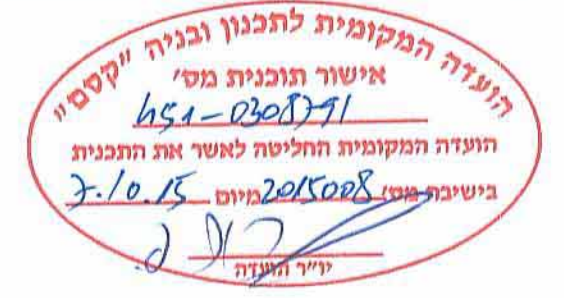 הועדה המקומית לתכנון ובניה "קסם"
אישור תוכנית מס'
451-0308791
הועדה המקומית החליטה לאשר את התכנית
בישיבת מס' 2015008 מיום 7.10.15
יו"ר הועדה